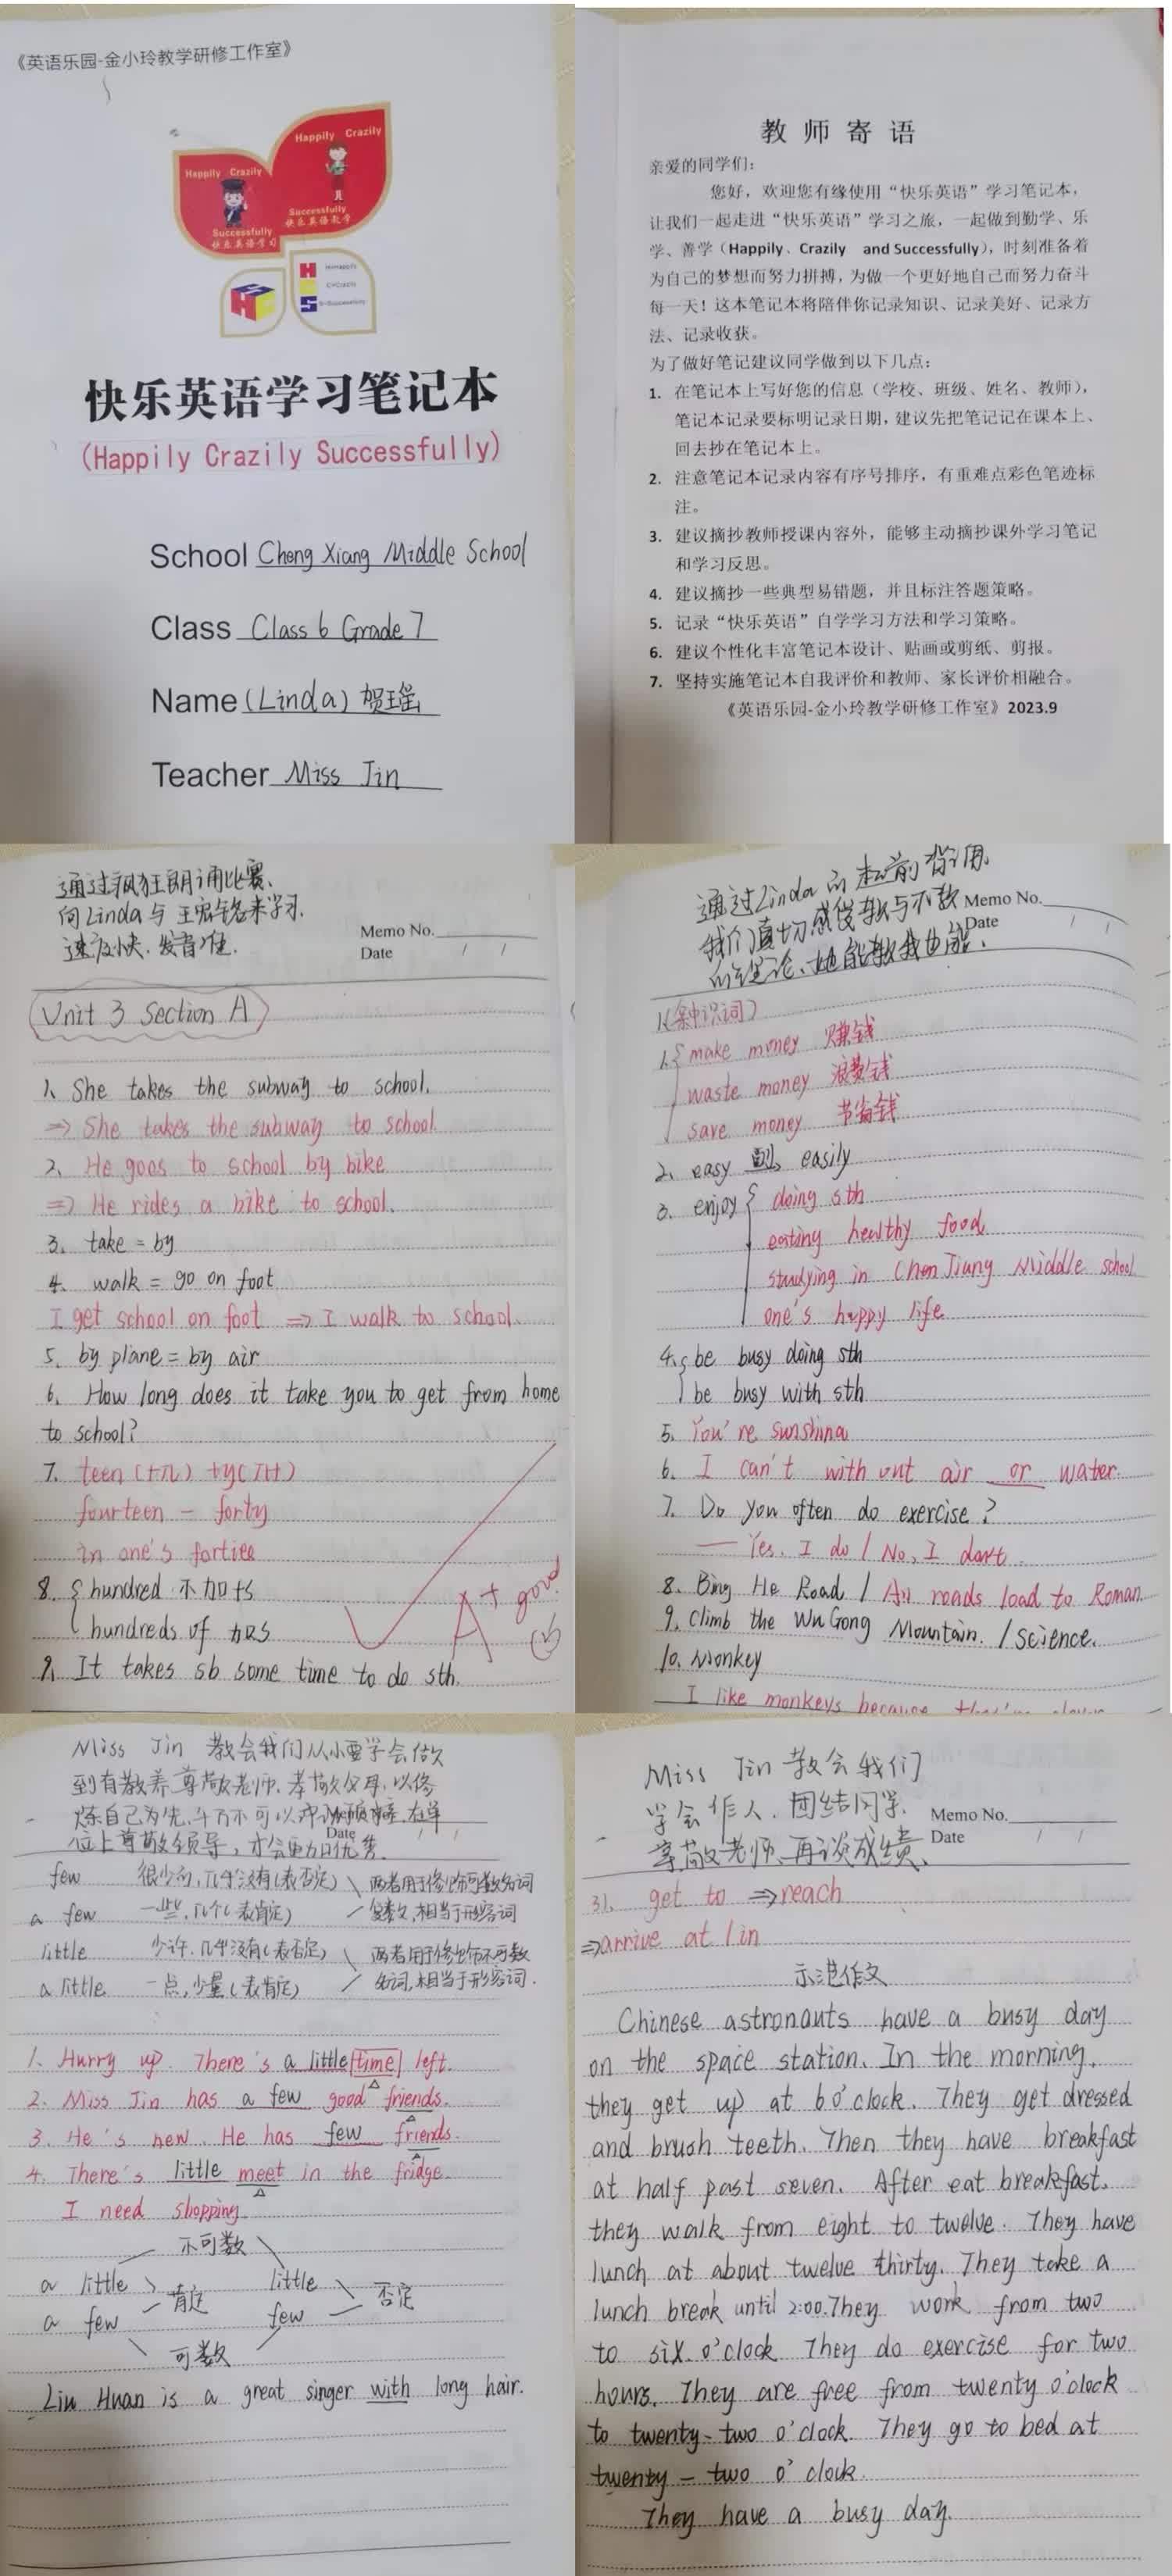 《英语乐园-金小玲教学研修工作室》
Happily Crazily
Happily Crazily
Successfully
快乐英语教学
Successfully
快乐英语学习
H
C
S
快乐英语学习笔记本
(Happily Crazily Successfully)
School Cheng Xiang Middle School
Class Class 6 Grade 7
Name (Linda) 贺瑶
Teacher Miss Jin
教师寄语
亲爱的同学们：
您好，欢迎您有缘使用“快乐英语”学习笔记本，
让我们一起走进“快乐英语”学习之旅，一起做到勤学、乐
学、善学（Happily、Crazily and Successfully），时刻准备着
为自己的梦想而努力拼搏，为做一个更好地自己而努力奋斗
每一天！这本笔记本将陪伴你记录知识、记录美好、记录方
法、记录收获。
为了做好笔记建议同学做到以下几点：
1. 在笔记本上写好您的信息（学校、班级、姓名、教师），
笔记本记录要标明记录日期，建议先把笔记记在课本上、
回去抄在笔记本上。
2. 注意笔记本记录内容有序号排序，有重难点彩色笔迹标
注。
3. 建议摘抄教师授课内容外，能够主动摘抄课外学习笔记
和学习反思。
4. 建议摘抄一些典型易错题，并且标注答题策略。
5. 记录“快乐英语”自学学习方法和学习策略。
6. 建议个性化丰富笔记本设计、贴画或剪纸、剪报。
7. 坚持实施笔记本自我评价和教师、家长评价相融合。
《英语乐园-金小玲教学研修工作室》2023.9
通过疯狂朗诵比赛、
向Linda与王 来学习.
速度快、发音准.
Memo No.
Date / /
Unit 3 Section A
1、She takes the subway to school.
⇒ She takes the subway to school.
2、He goes to school by bike
⇒ He rides a bike to school.
3、take = by
4、walk = go on foot
I get school on foot ⇒ I walk to school.
5、by plane = by air
6、How long does it take you to get from home
to school?
7、teen (十几) ty(几十)
fourteen - forty
in one's forties
8、{ hundred 不加s
hundreds of 加s
A+ good
9、It takes sb some time to do sth.
通过Linda的 前背诵
我们真切感受教与不教
的理论、她能教我也能、
Memo No.
Date / /
1、{ make money 赚钱
waste money 浪费钱
save money 节省钱
2、easy 副 easily
3、enjoy { doing sth
eating healthy food
studying in Chen Jiang Middle school
one's happy life
4、{ be busy doing sth
be busy with sth
5、You're sunshine
6、I can't with out air or water.
7、Do you often do exercise?
— Yes, I do / No, I don't.
8、Bing He Road / All roads load to Roman.
9、Climb the Wu Gong Mountain. / Science.
10、Monkey
I like monkeys because they're clever
Miss Jin 教会我们从小要学会做
到有教养尊敬老师、孝敬父母，以修
炼自己为先、千万不可以 在单
位上尊敬领导，才会更加优秀.
Date / /
few 很少的，几乎没有(表否定) \ 两者用于修饰可数名词
a few 一些，几个(表肯定) / 复数，相当于形容词
little 少许，几乎没有(表否定) \ 两者用于修饰不可数
a little 一点，少量(表肯定) / 名词，相当于形容词.
1、Hurry up. There's a little time left.
2、Miss Jin has a few good friends.
3、He's new. He has few friends.
4、There's little meet in the fridge.
I need shopping.
不可数
a little > 肯定 little > 否定
a few few
可数
Liu Huan is a great singer with long hair.
Miss Jin教会我们
学会作人、团结同学.
尊敬老师、再谈成绩、
Memo No.
Date / /
31、get to ⇒ reach
⇒ arrive at / in
示范作文
Chinese astronauts have a busy day
on the space station. In the morning,
they get up at 6 o'clock. They get dressed
and brush teeth. Then they have breakfast
at half past seven. After eat breakfast,
they walk from eight to twelve. They have
lunch at about twelve thirty. They take a
lunch break until 2:00. They work from two
to six o'clock They do exercise for two
hours. They are free from twenty o'clock
to twenty-two o'clock. They go to bed at
twenty-two o'clock.
They have a busy day.